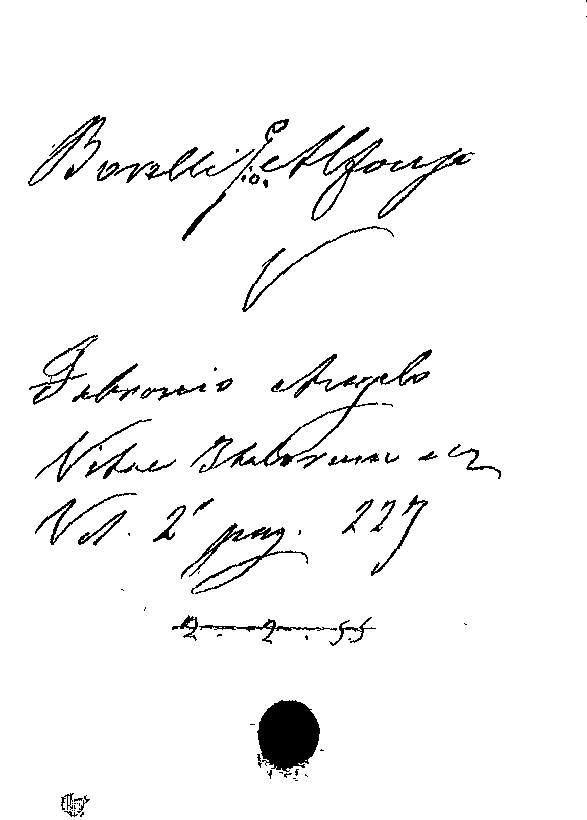 Borelli Gio. Alfonso
V
Fabronio Angelo
Vitae Italorum ecc
Vol. 2° pag. 227
2. 2. 55